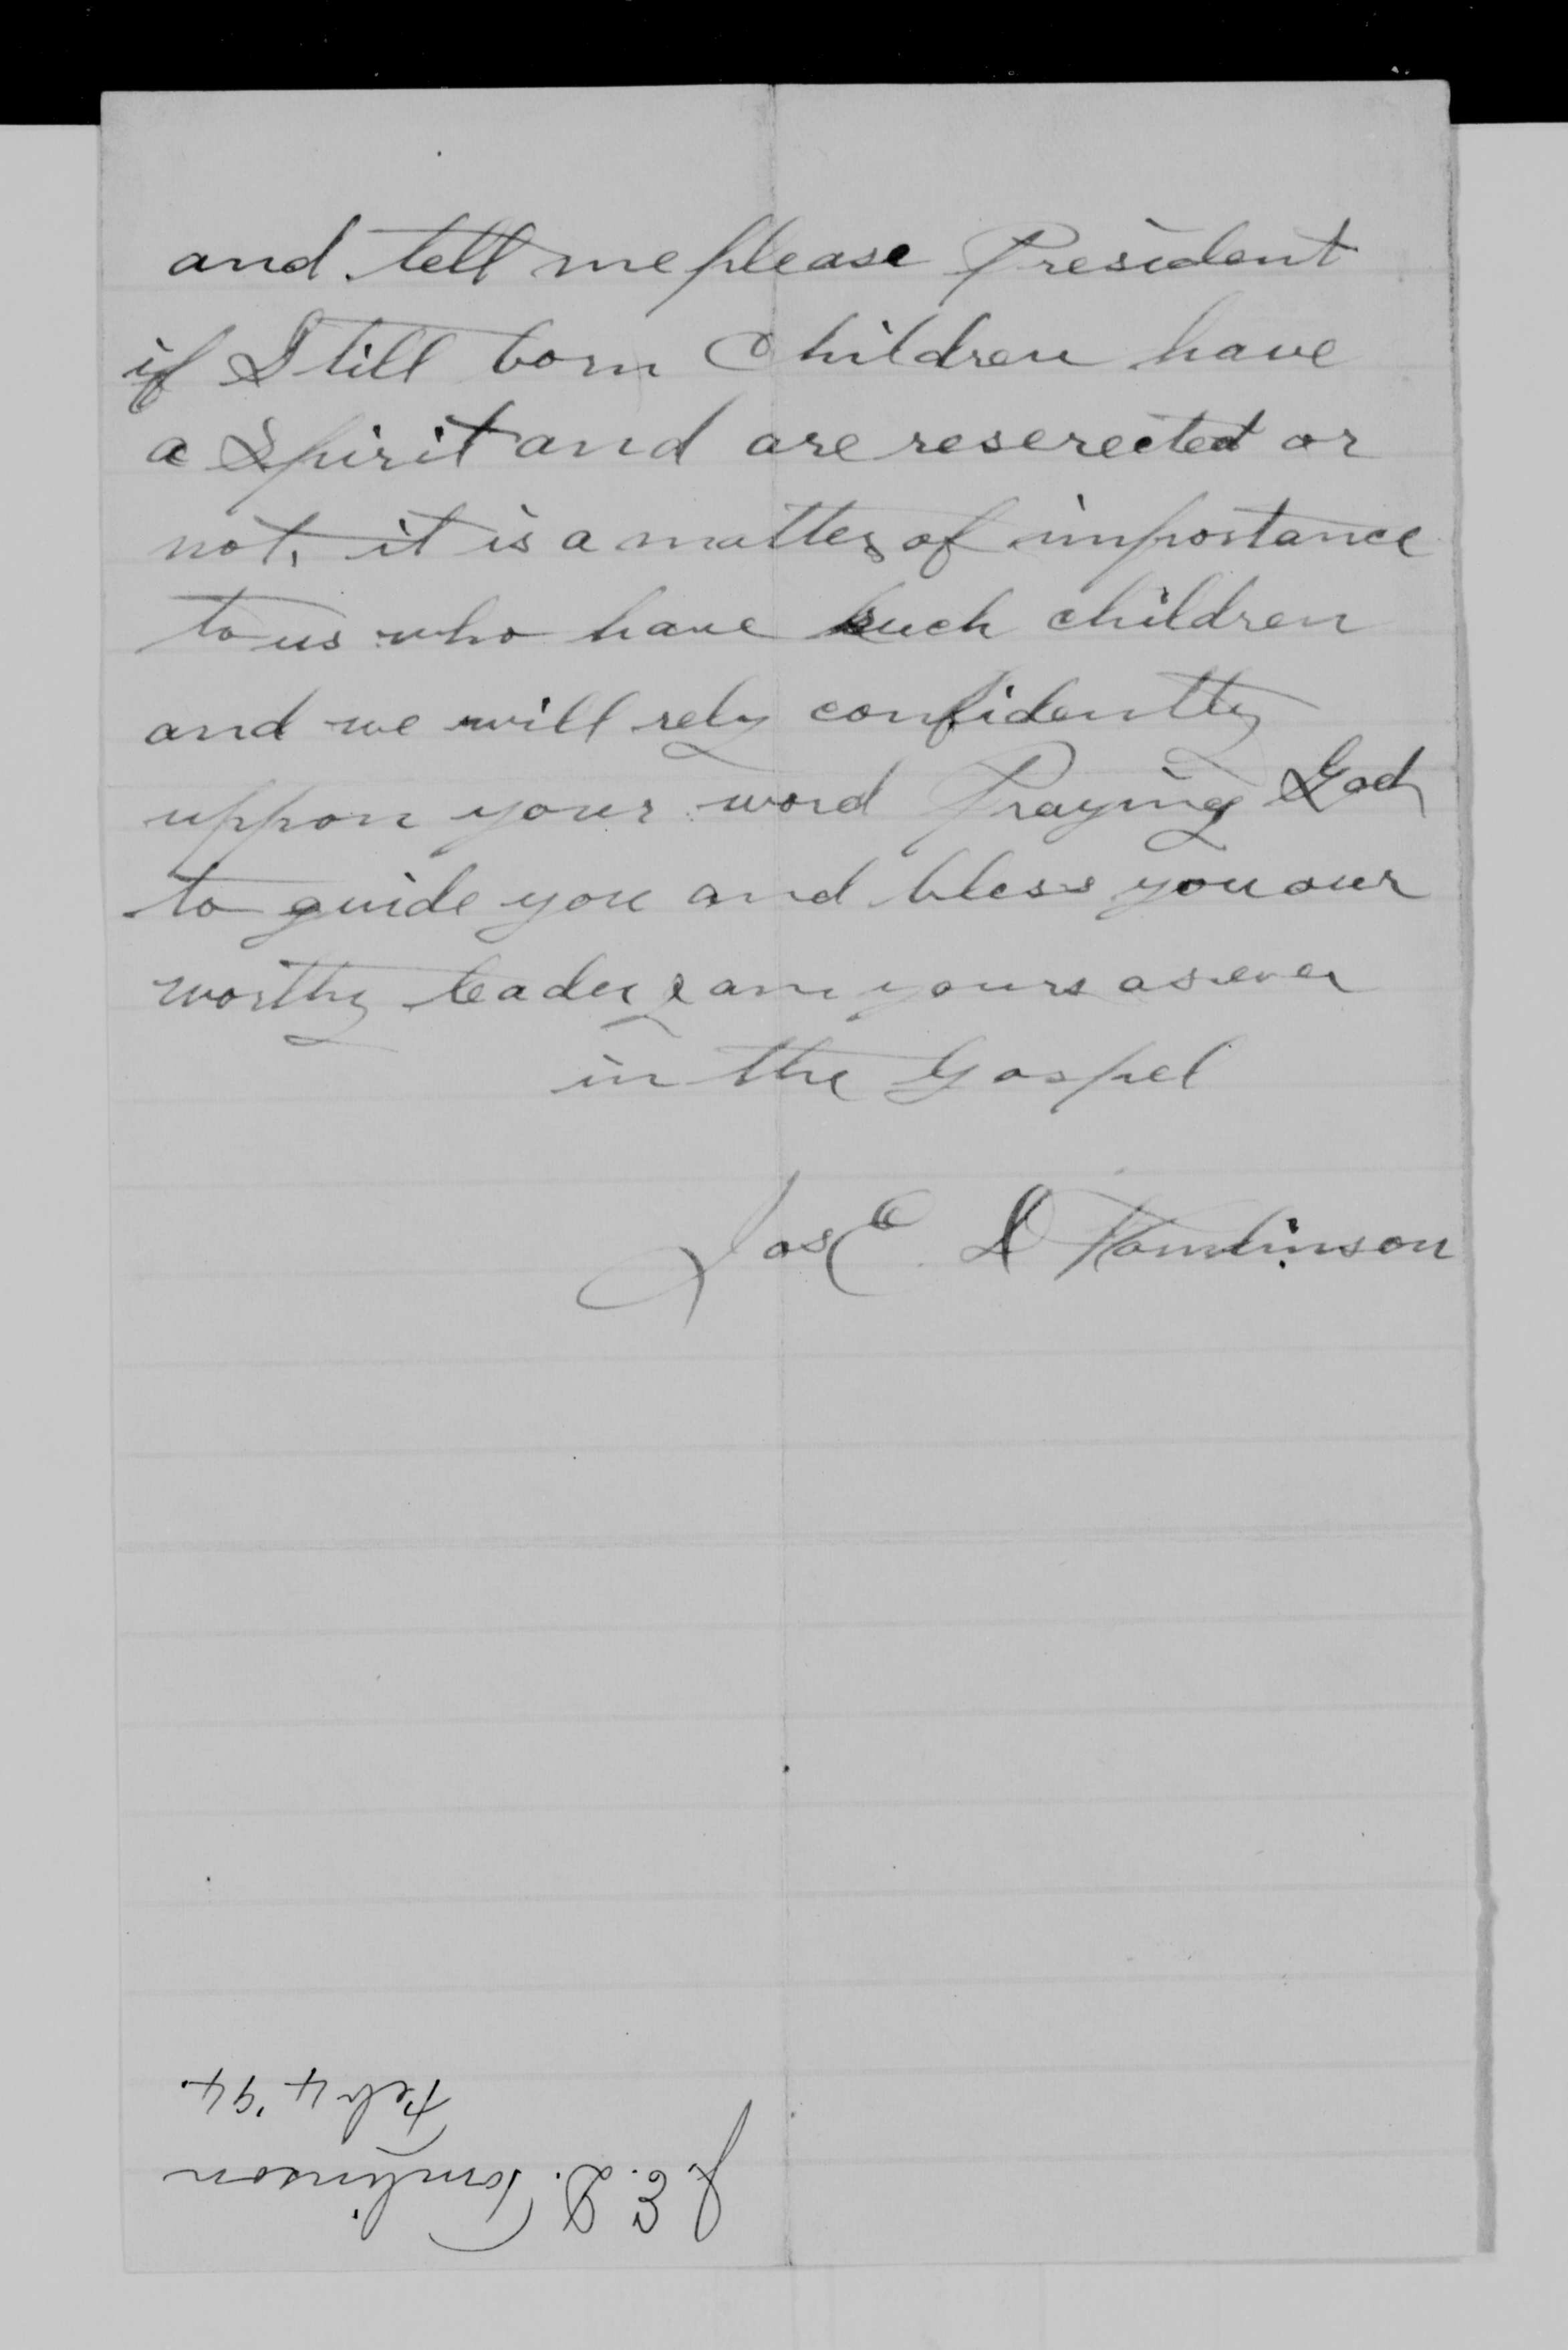 and tell me please President
if Still born Children have
a Spirit and are reserected or
not, it is a matter of importance
to us who have such children
and we will rely confidently
uppon your word Praying God
to guide you and bless you our
worthy leader I am yours as ever
in the Gospel
Jos E D Tomlinson
J. E. D. Tomlinson
Feb 4 '94.